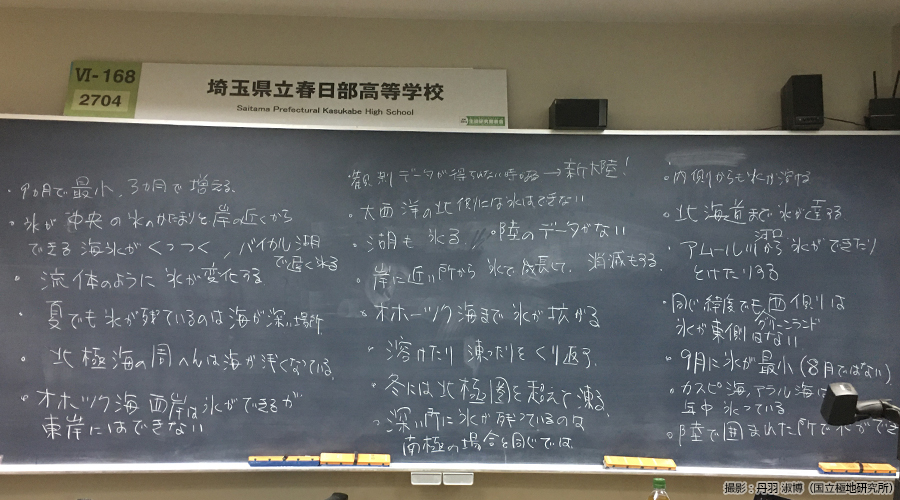 VI-168
2704
埼玉県立春日部高等学校
Saitama Prefectural Kasukabe High School
・9カ月で最小、3カ月で増える。
・氷が中央の氷のかたまりと岸の近くから
できる海氷がくっつく
バイカル湖
で遅く氷る
・流体のように氷が変化する
・夏でも氷が残ているのは海が深い場所
・北極海の周へんは海が浅くなっている。
・オホーツク海西岸は氷ができるが
東岸にはできない
・観測データが得られない時がある→新大陸!
・大西洋の北側には氷はできない
・湖も氷る
・陸のデータがない
・岸に近い所から氷で成長して、消滅もする。
・オホーツク海まで氷が拡がる
・溶けたり凍ったりをくり返す。
・冬には北極圏を超えて凍る。
・深い所に氷が残っているのは
南極の場合と同じでは
・内側からも氷が溶ける
・北海道まで氷が達する
河口
・アムール川から氷ができたり
とけたりする
・同じ緯度でも西側は
氷が東側はない
グリーンランド
・9月に氷が最小(8月ではない)
・カスピ海,アラル海は
年中氷っている
・陸で囲まれた所で氷ができ
撮影:丹羽 淑博(国立極地研究所)